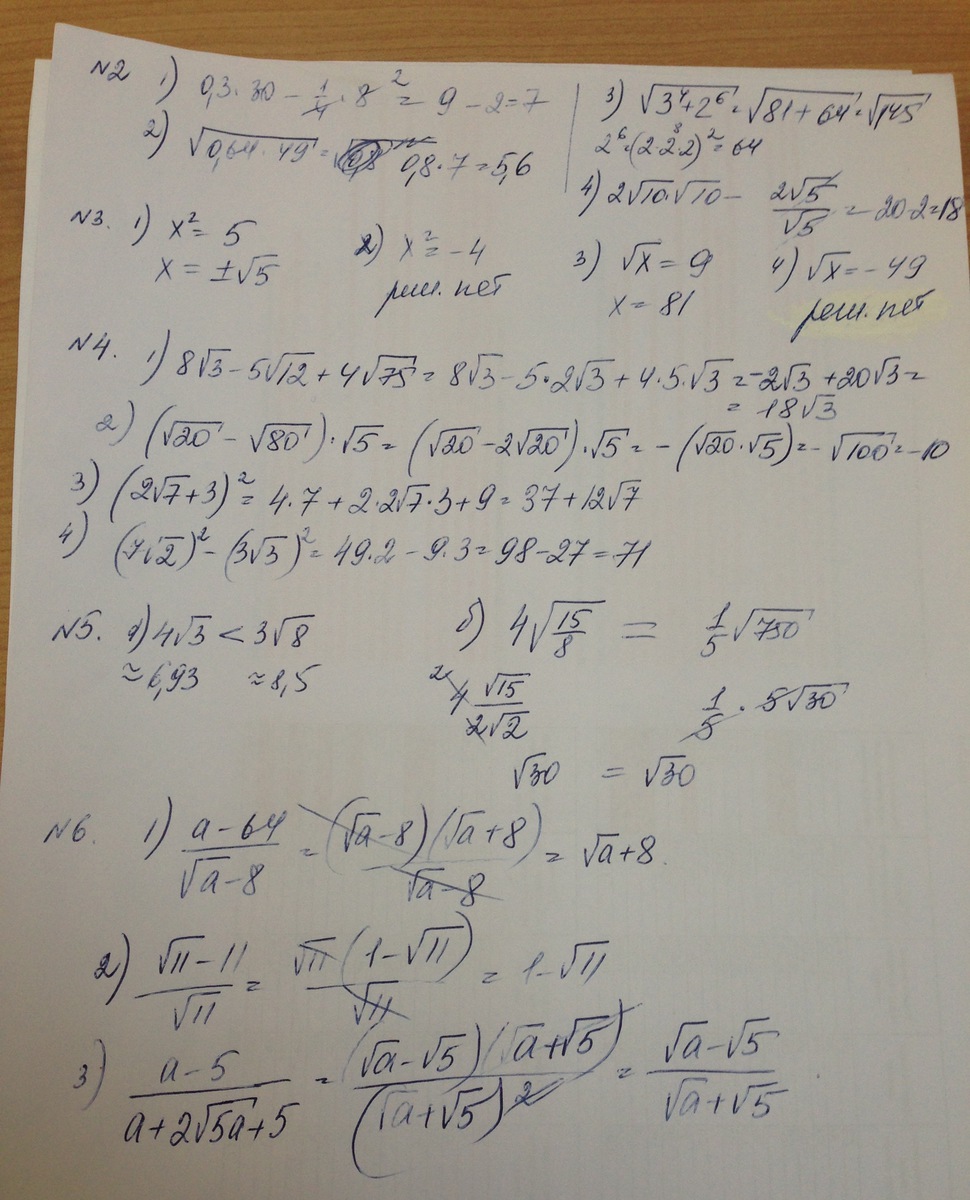 N2 1) 0,3·30 - 1/4·8² = 9 - 2 = 7
2) √0,64·49 = 0,8·7 = 5,6
3) √3⁴+2⁶ = √81+64 = √145
2⁶=(2·2·2)² = 64
4) 2√10·√10 - 2√5/√5 = 20-2=18
N3. 1) x² = 5
x = ±√5
2) x² = -4
реш. нет
3) √x = 9
x = 81
4) √x = -49
реш. нет
N4. 1) 8√3 - 5√12 + 4√75 = 8√3 - 5·2√3 + 4·5·√3 = -2√3 + 20√3 =
= 18√3
2) (√20 - √80)·√5 = (√20 - 2√20)·√5 = -(√20·√5) = -√100 = -10
3) (2√7+3)² = 4·7 + 2·2√7·3 + 9 = 37 + 12√7
4) (7√2)² - (3√3)² = 49·2 - 9·3 = 98 - 27 = 71
N5. а) 4√3 < 3√8
≈6,93 ≈8,5
б) 4√15/8 = 1/5√750
4√15/2√2 1/5·5√30
√30 = √30
N6. 1) a-64/√a-8 = (√a-8)(√a+8)/√a-8 = √a+8.
2) √11-11/√11 = √11(1-√11)/√11 = 1-√11
3) a-5/a+2√5a+5 = (√a-√5)(√a+√5)/(√a+√5)² = √a-√5/√a+√5